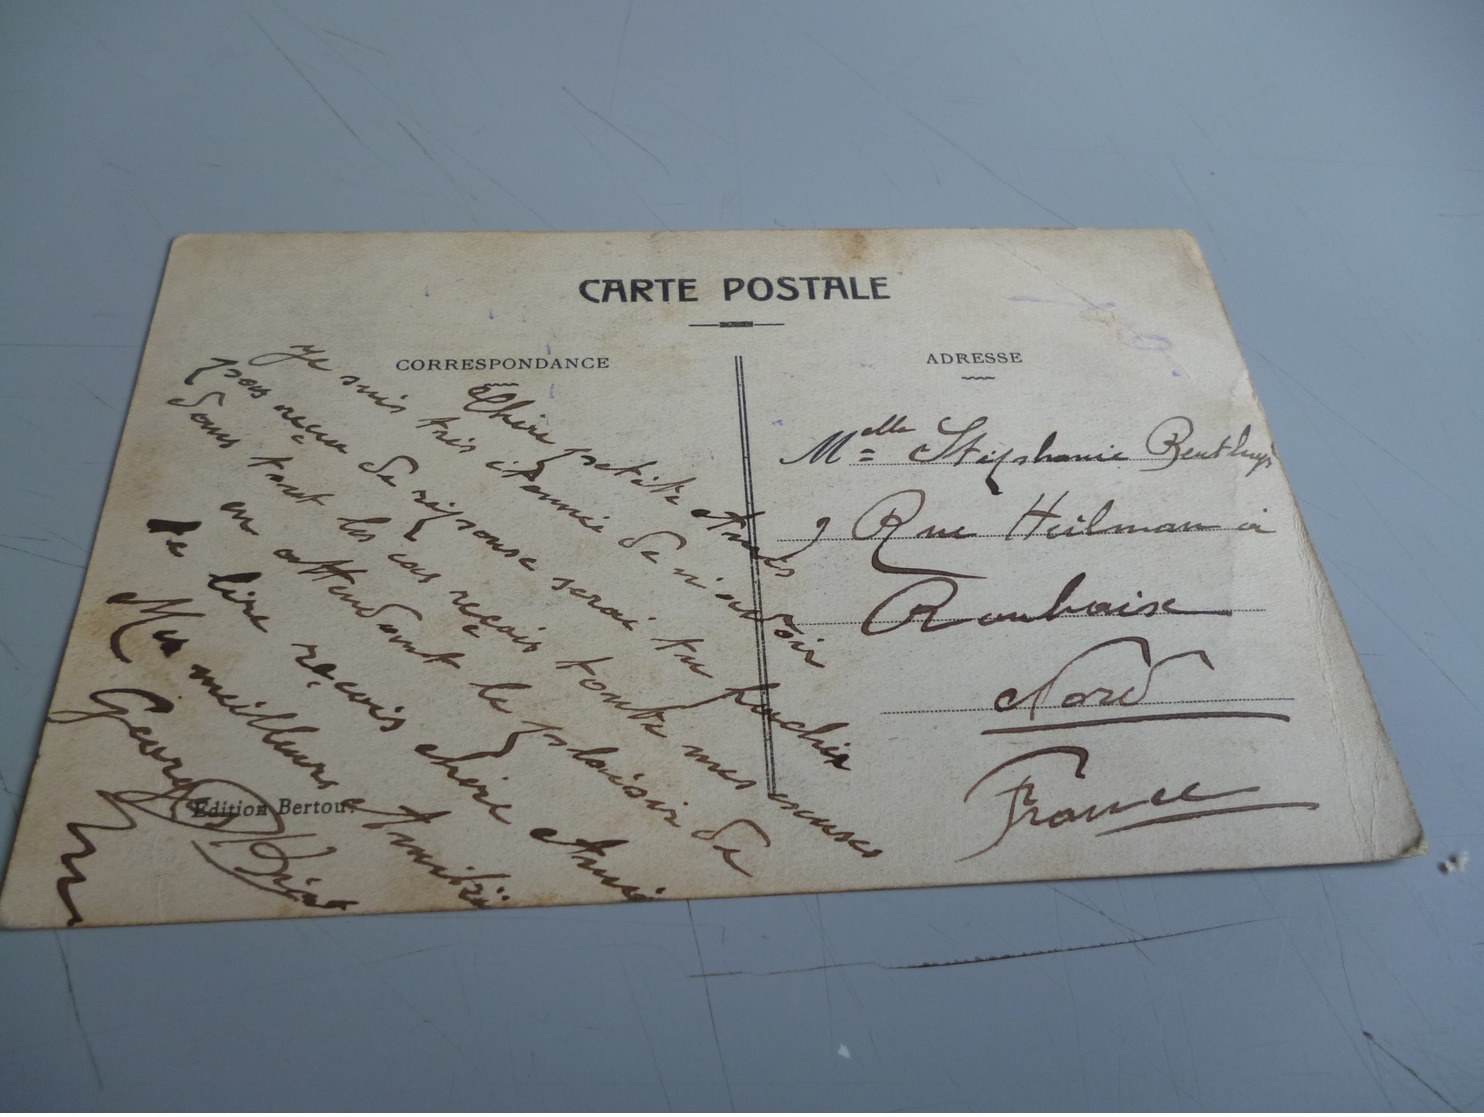 CARTE POSTALE
CORRESPONDANCE
ADRESSE
Chère petite Amie
je suis très étonnée de n'avoir
pas reçu de réponse serai tu fachée
Dans tout les cas reçois toute mes excuses
en attendant le plaisir de
te lire reçois chère Amie
Mes meilleurs Amitié
Georges
Edition Bertou
Melle Stéphanie
9 Rue Heilman à
Roubaix
Nord
France